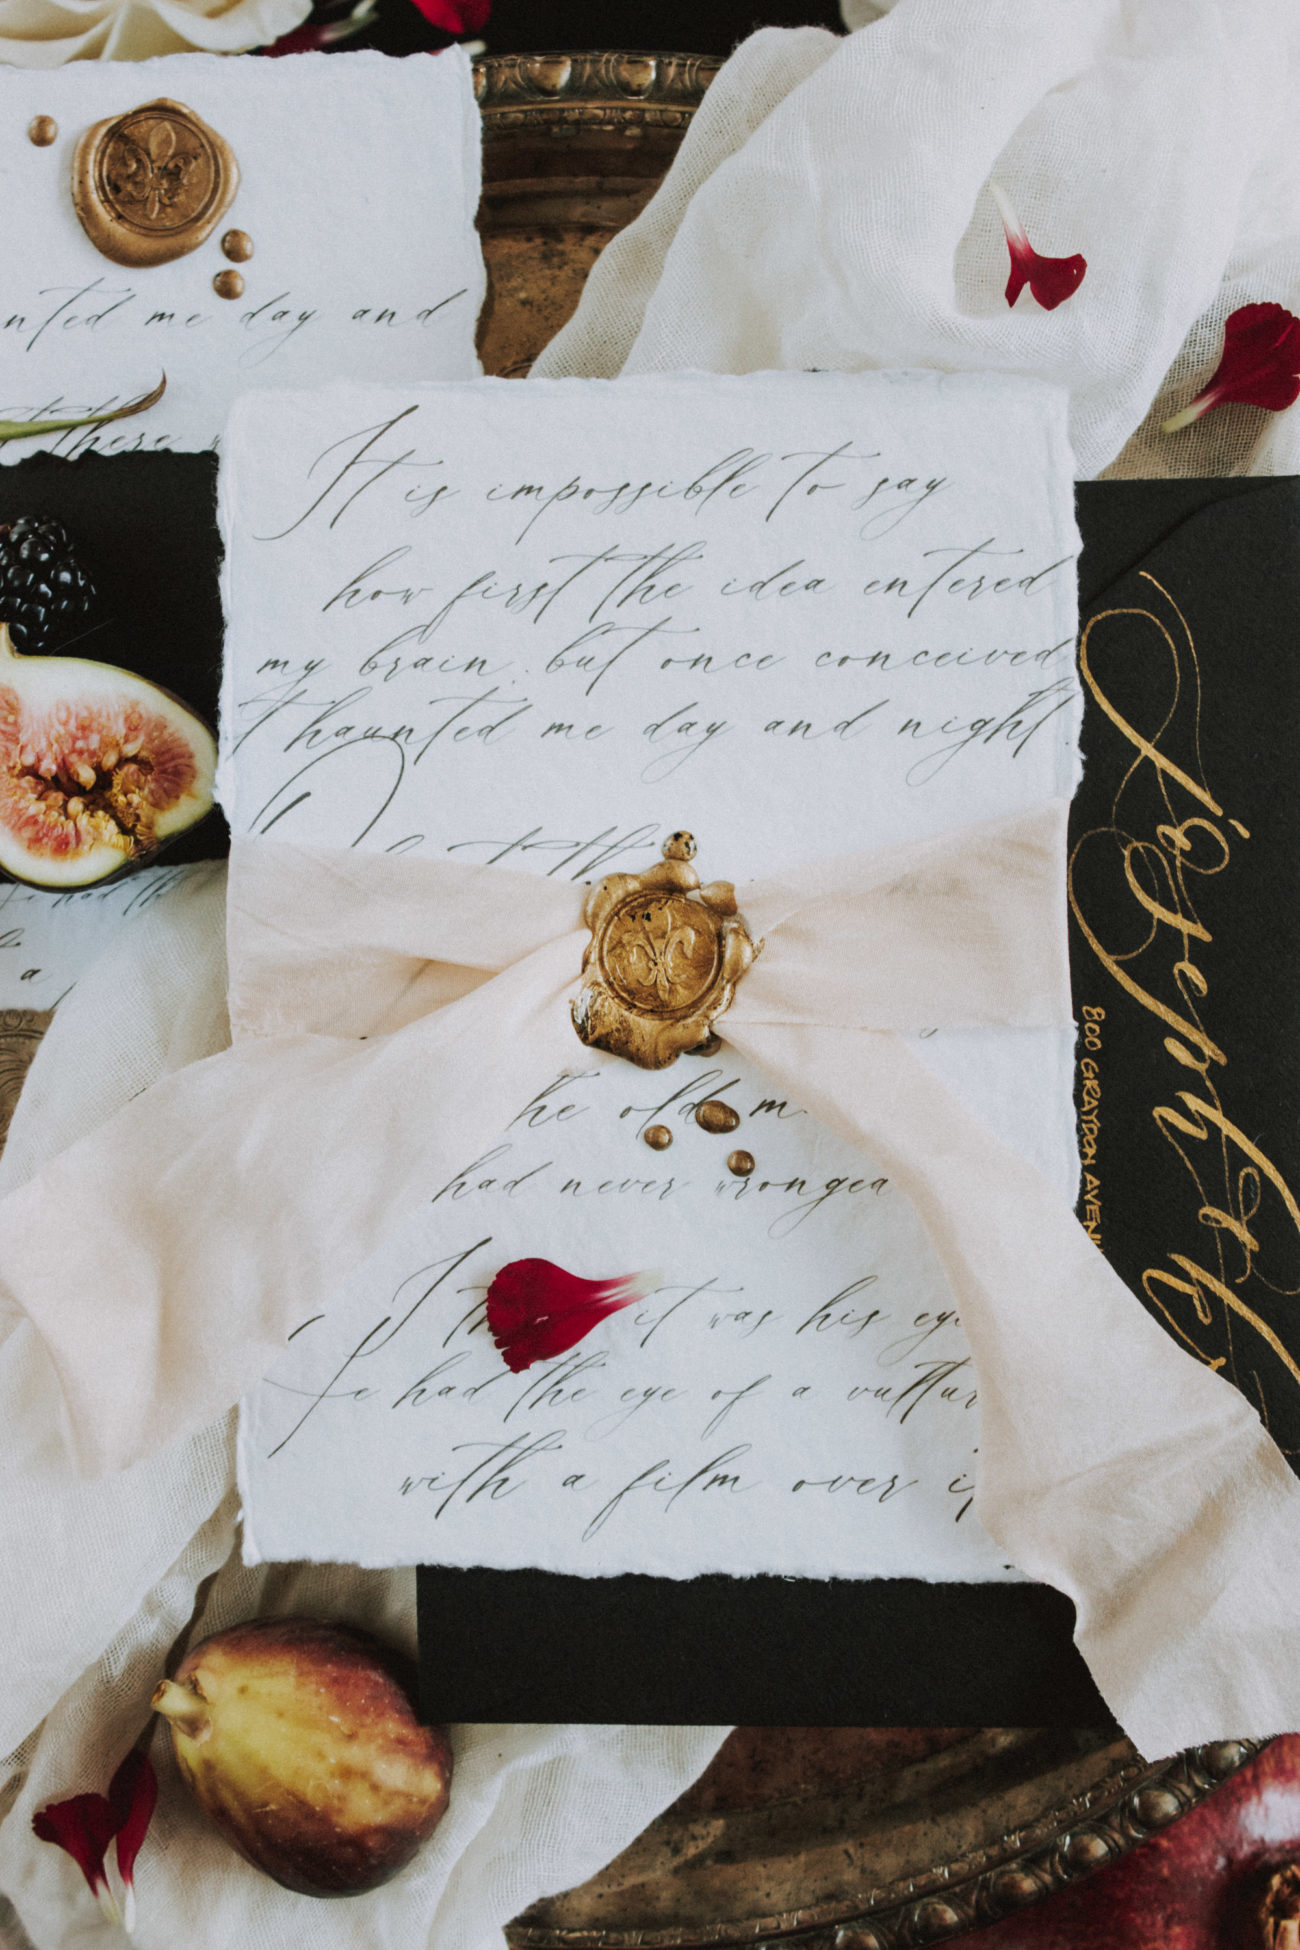 nted me day and
there
It is impossible to say
how first the idea entered
my brain. but once conceived
t haunted me day and night.
the old m
had never wronged
I it was his eye
He had the eye of a vultur
with a film over i
had th
a
Joseph
800 GRAYDON AVENU